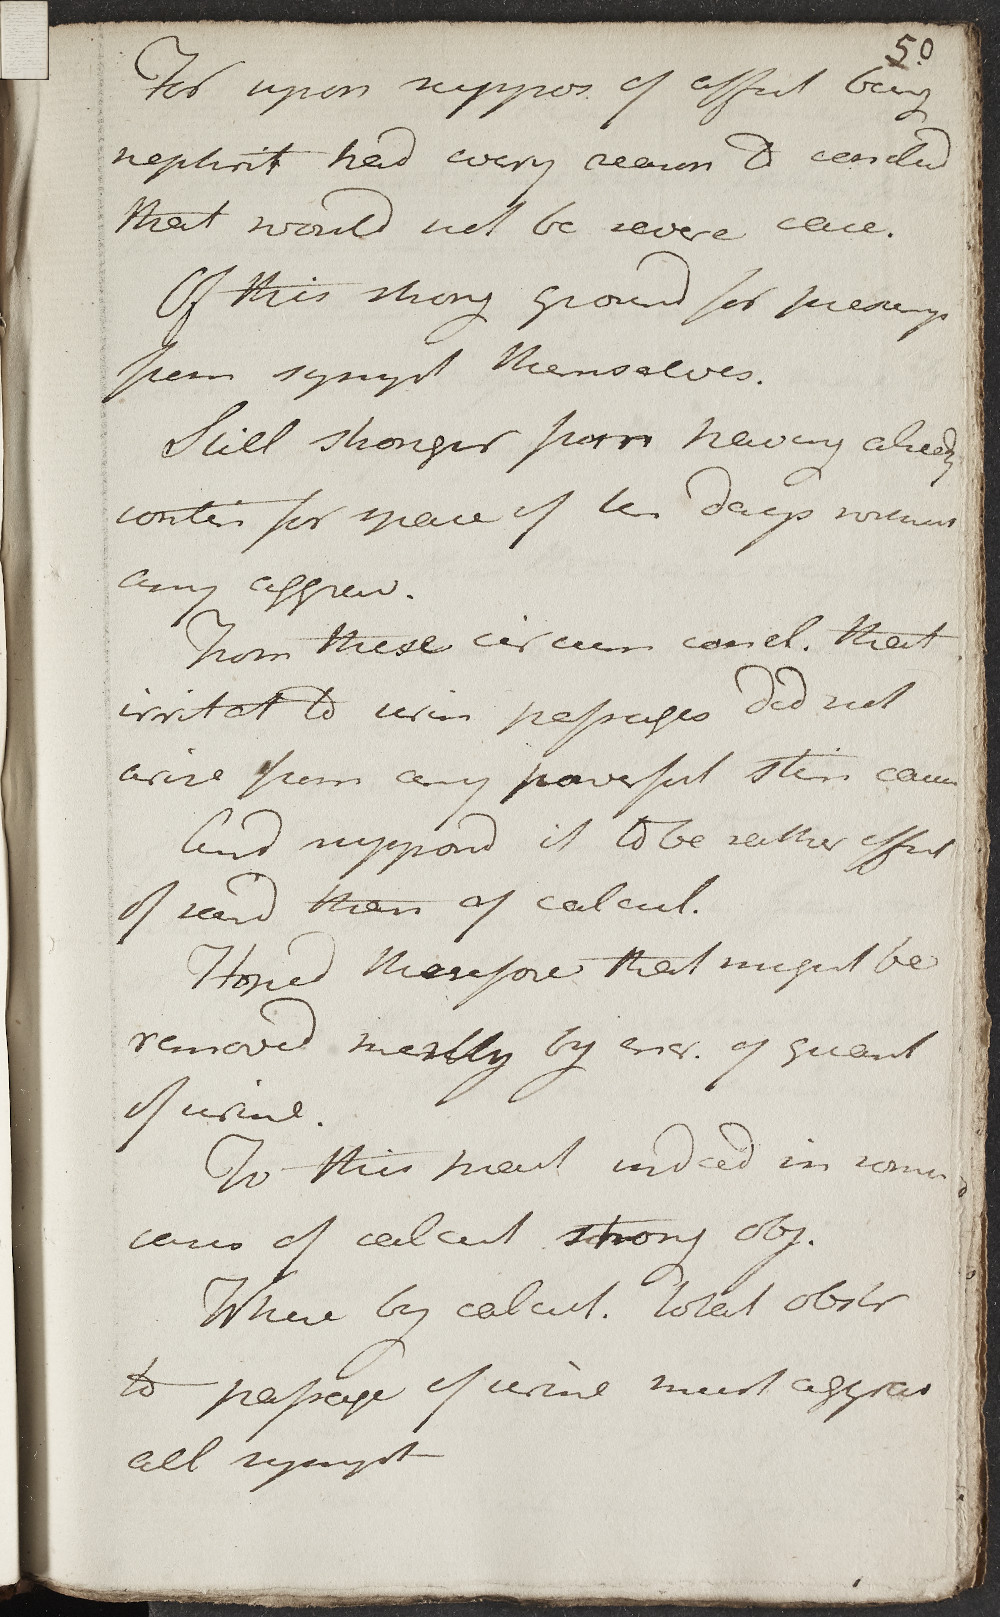 50
For upon suppos. of affect being
nephrit had every reason to conclud
that would not be severe case.
Of this strong ground for presump
from sympt themselves.
Still stronger from having already
contin for space of ten days without
any aggrav.
From these circum concl. that
irritat to urin passages did not
arise from any powerful stim caus
And suppos'd it to be rather effect
of sand than of calcul.
Hoped therefore that might be
removed merely by incr. of quant
of urine.
To this pract indeed in some
cases of calcul strong obj.
Where by calcul. total obstr
to passage of urine must aggrav
all sympt